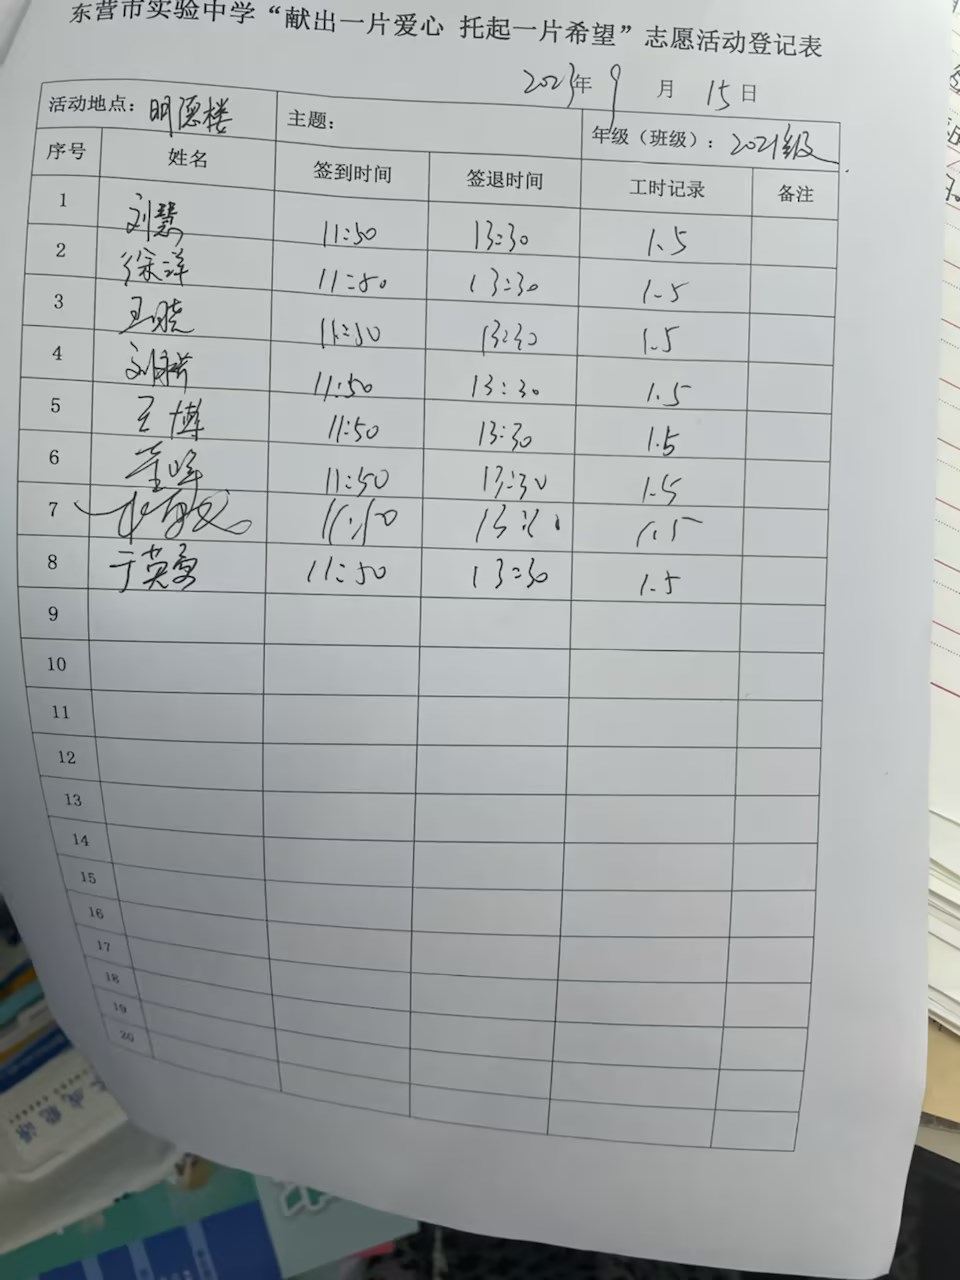 东营市实验中学“献出一片爱心 托起一片希望”志愿活动登记表
2023年 9 月 15 日
活动地点: 明德楼 主题: 年级（班级）: 2021级
序号 姓名 签到时间 签退时间 工时记录 备注
1 刘慧 11:50 13:30 1.5
2 徐洋 11:50 13:30 1.5
3 王晓 11:50 13:30 1.5
4 刘 11:50 13:30 1.5
5 王博 11:50 13:30 1.5
6 11:50 13:30 1.5
7 11:50 13:30 1.5
8 于英曼 11:50 13:30 1.5
9
10
11
12
13
14
15
16
17
18
19
20